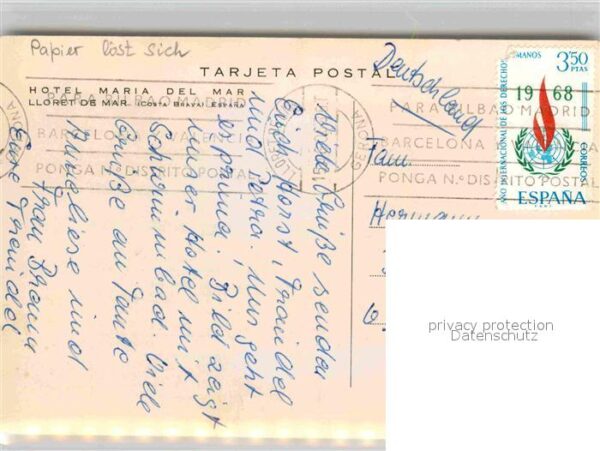 Papier löst sich
TARJETA POSTAL
HOTEL MARIA DEL MAR
LLORET DE MAR (COSTA BRAVA) ESPAÑA
Viele Grüße senden
Euch Horst, Traudel
und Petra. Uns geht
es prima. Bild zeigt
unser Hotel mit
Schwimmbad. Viele
Grüße an Tante
Anneliese und
Frau Braun
Eure Traudel
Deutschland
Fam.
Hermann
GERONA
PARA BILBAO MADRID
BARCELONA VALENCIA
PONGA N.º DISTRITO POSTAL
LLORET
GERONA
PARA BILBAO MADRID
BARCELONA
PONGA N.º DISTRITO POSTAL
3'50
PTAS
1968
AÑO INTERNACIONAL DE LOS DERECHOS
HUMANOS
CORREOS
ESPAÑA
privacy protection
Datenschutz